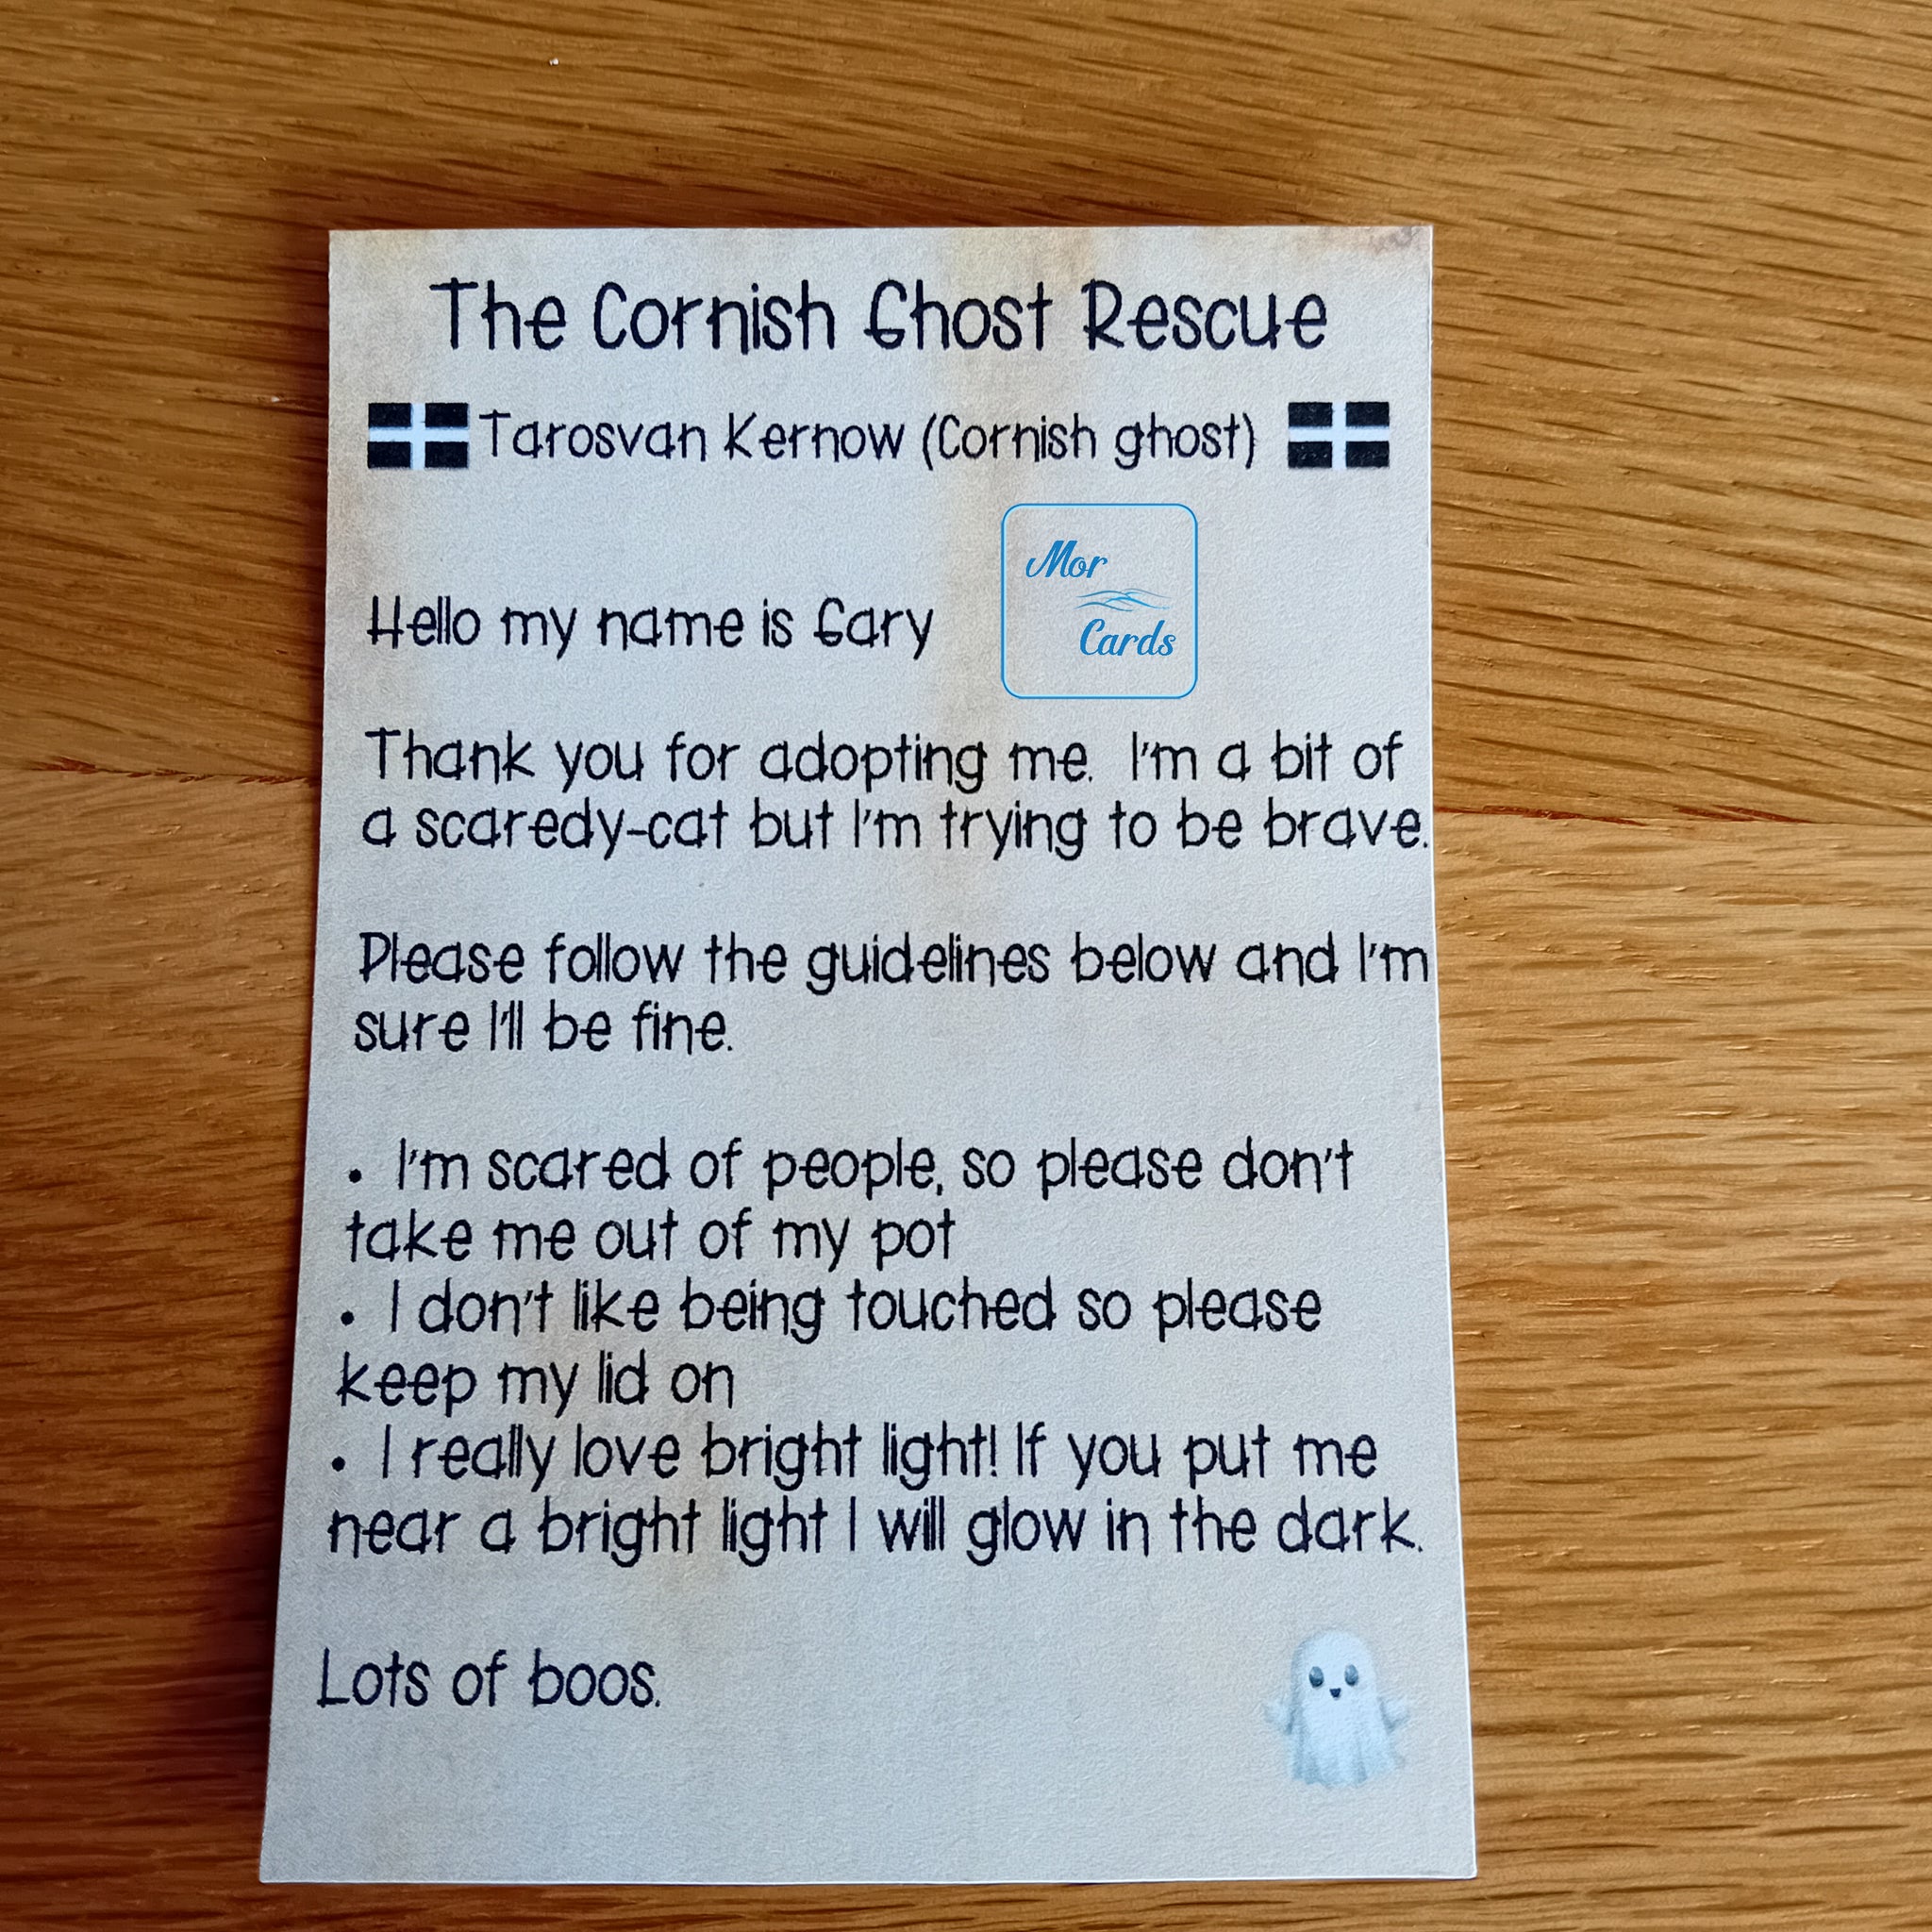 The Cornish Ghost Rescue
Tarosvan Kernow (Cornish ghost)
Mor
Cards
Hello my name is Gary
Thank you for adopting me. I'm a bit of
a scaredy-cat but I'm trying to be brave.
Please follow the guidelines below and I'm
sure I'll be fine.
• I'm scared of people, so please don't
take me out of my pot
• I don't like being touched so please
keep my lid on
• I really love bright light! If you put me
near a bright light I will glow in the dark.
Lots of boos.